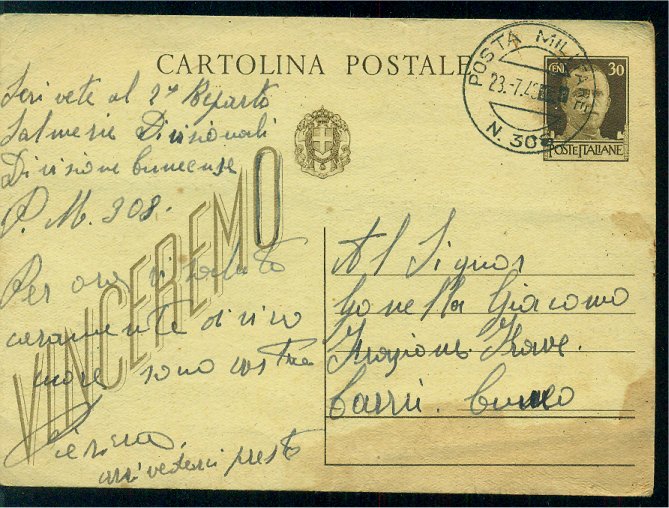 CARTOLINA POSTALE
POSTA MILITARE
23.7.43
N. 308
CEN 30
POSTE ITALIANE
VINCEREMO
Scrivete al 2º Reparto
Salmerie Divisionali
Divisione Cuneense
P. M. 308.
Per ora vi saluto
caramente di vivo
cuore sono vostro
arrivederci presto
Al Signor
Gonella Giacomo
Frazione Trave.
Carrù. Cuneo